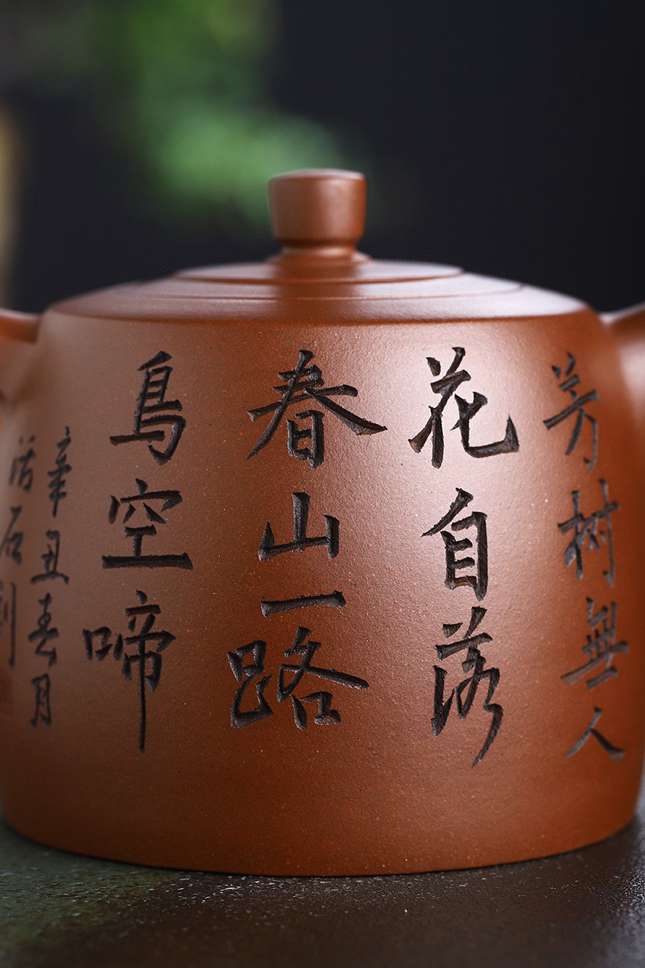 芳樹無人
花自落
春山一路
鳥空啼
辛丑春月
石刻